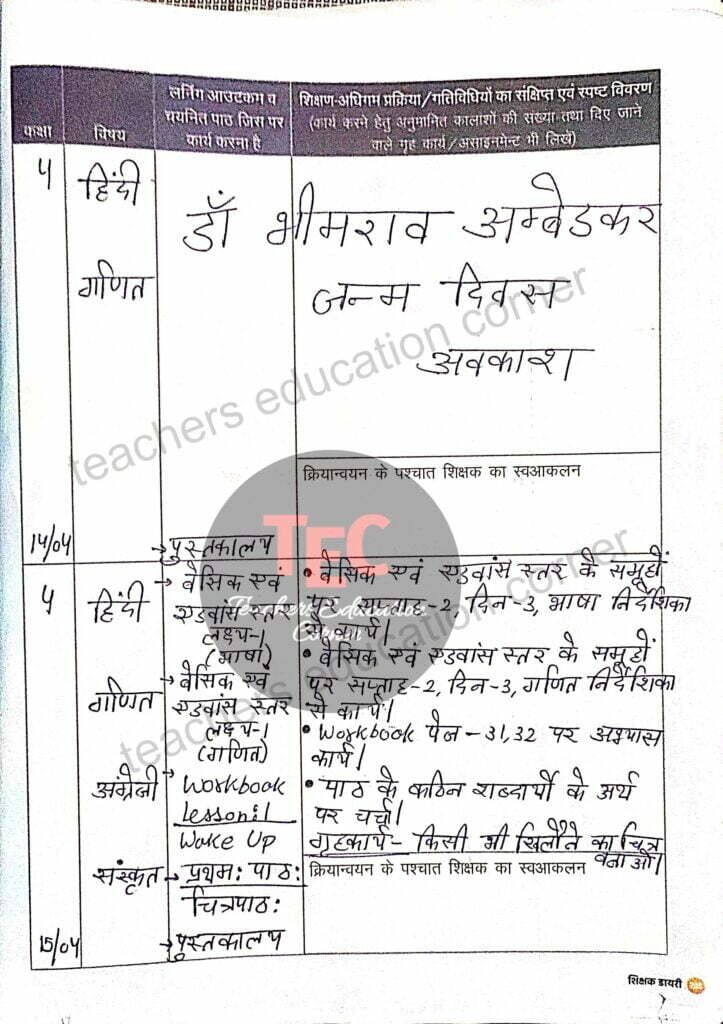 कक्षा
विषय
लर्निंग आउटकम व
चयनित पाठ जिस पर
कार्य करना है
शिक्षण-अधिगम प्रक्रिया/गतिविधियों का संक्षिप्त एवं स्पष्ट विवरण
(कार्य करने हेतु अनुमानित कालांशों की संख्या तथा दिए जाने
वाले गृह कार्य/असाइनमेन्ट भी लिखें)
4
हिंदी
गणित
डॉ भीमराव अम्बेडकर
जन्म दिवस
अवकाश
क्रियान्वयन के पश्चात शिक्षक का स्वआकलन
14/04
→ पुस्तकालय
4
हिंदी
→ बेसिक एवं
एडवांस स्तर
लक्ष्य-1
(भाषा)
• बेसिक एवं एडवांस स्तर के समूहों
पर सप्ताह-2, दिन-3, भाषा निर्देशिका
से कार्य।
गणित
→ बेसिक एवं
एडवांस स्तर
लक्ष्य-1
(गणित)
• बेसिक एवं एडवांस स्तर के समूहों
पर सप्ताह-2, दिन-3, गणित निर्देशिका
से कार्य।
अंग्रेजी
→ Workbook
Lesson:1
Wake Up
• Workbook पेज - 31,32 पर अभ्यास
कार्य।
• पाठ के कठिन शब्दार्थो के अर्थ
पर चर्चा।
गृहकार्य- किसी भी खिलौने का चित्र
बनाओ।
संस्कृत
→ प्रथम: पाठ:
चित्रपाठ:
क्रियान्वयन के पश्चात शिक्षक का स्वआकलन
15/04
→ पुस्तकालय
शिक्षक डायरी
teachers education corner
TEC
Teachers Education
Corner
teachers education corner